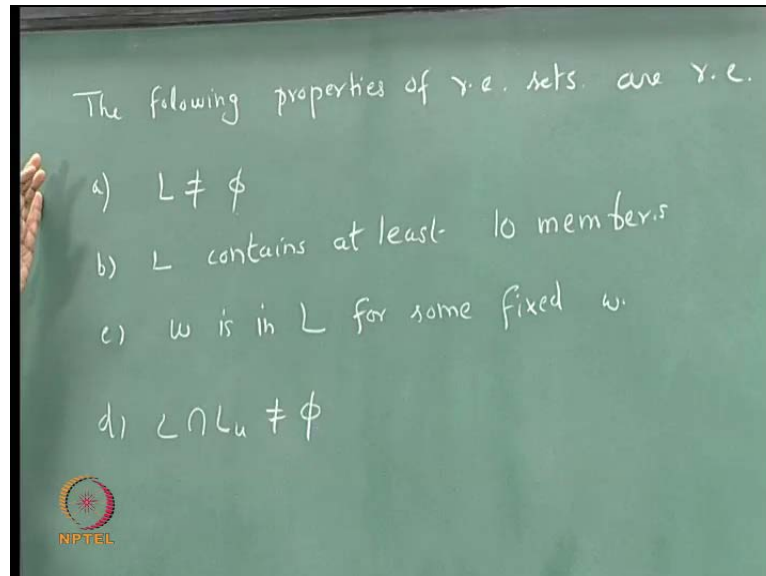 The folowing properties of r.e. sets. are r.e.
a) L ≠ ϕ
b) L contains at least 10 members
c) w is in L for some fixed w.
d) L ∩ Lu ≠ ϕ
NPTEL